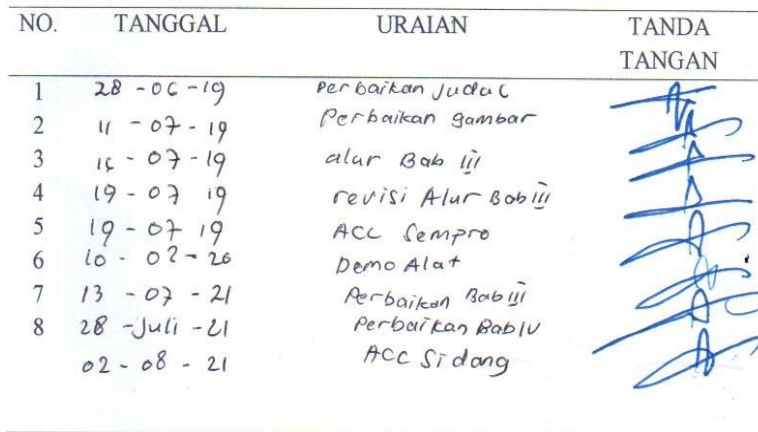 NO. TANGGAL URAIAN TANDA
TANGAN
1 28 - 06 - 19 Perbaikan Judul
2 11 - 07 - 19 Perbaikan gambar
3 16 - 07 - 19 alur Bab III
4 19 - 07 19 revisi Alur Bab III
5 19 - 07 19 ACC Sempro
6 10 - 02 - 20 Demo Alat
7 13 - 07 - 21 Perbaikan Bab III
8 28 - Juli - 21 Perbaikan Bab IV
02 - 08 - 21 ACC Sidang